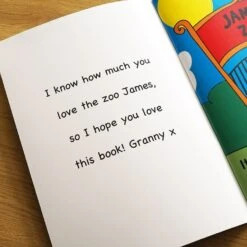 I know how much you
love the zoo James,
so I hope you love
this book! Granny x